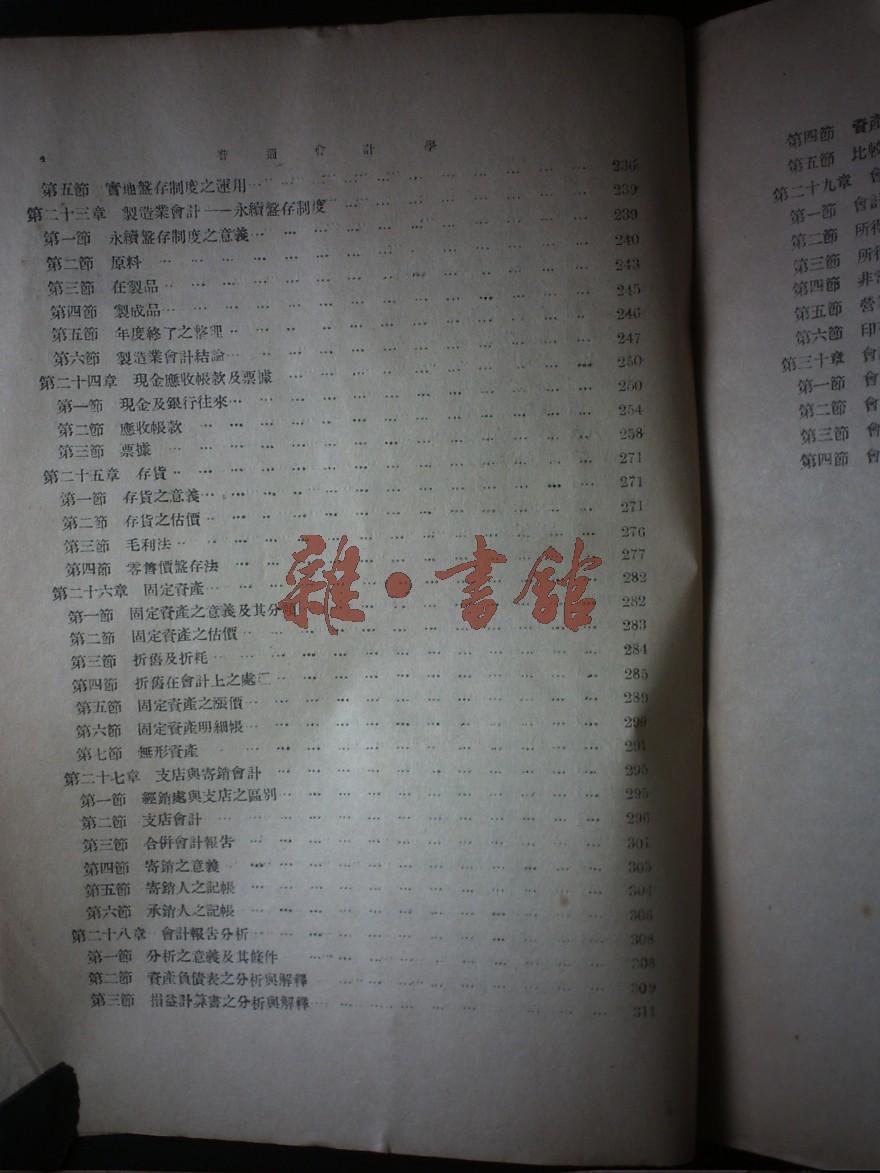 4 普通會計學
第五節 實地盤存制度之運用 236
第二十三章 製造業會計——永續盤存制度 239
第一節 永續盤存制度之意義 239
第二節 原料 240
第三節 在製品 243
第四節 製成品 245
第五節 年度終了之整理 246
第六節 製造業會計結論 247
第二十四章 現金應收帳款及票據 250
第一節 現金及銀行往來 250
第二節 應收帳款 254
第三節 票據 258
第二十五章 存貨 271
第一節 存貨之意義 271
第二節 存貨之估價 271
第三節 毛利法 276
第四節 零售價盤存法 277
第二十六章 固定資產 282
第一節 固定資產之意義及其分類 282
第二節 固定資產之估價 283
第三節 折舊及折耗 284
第四節 折舊在會計上之處 285
第五節 固定資產之漲價 289
第六節 固定資產明細帳 290
第七節 無形資產 291
第二十七章 支店與寄銷會計 295
第一節 經銷處與支店之區別 295
第二節 支店會計 296
第三節 合併會計報告 301
第四節 寄銷之意義 303
第五節 寄銷人之記帳 304
第六節 承銷人之記帳 306
第二十八章 會計報告分析 308
第一節 分析之意義及其條件 308
第二節 資產負債表之分析與解釋 309
第三節 損益計算書之分析與解釋 311
雜·書館
第四節 資產
第五節 比較
第二十九章 會
第一節 會計
第二節 所得
第三節 所得
第四節 非常
第五節 營
第六節 印
第三十章 會
第一節 會
第二節 會
第三節 會
第四節 會